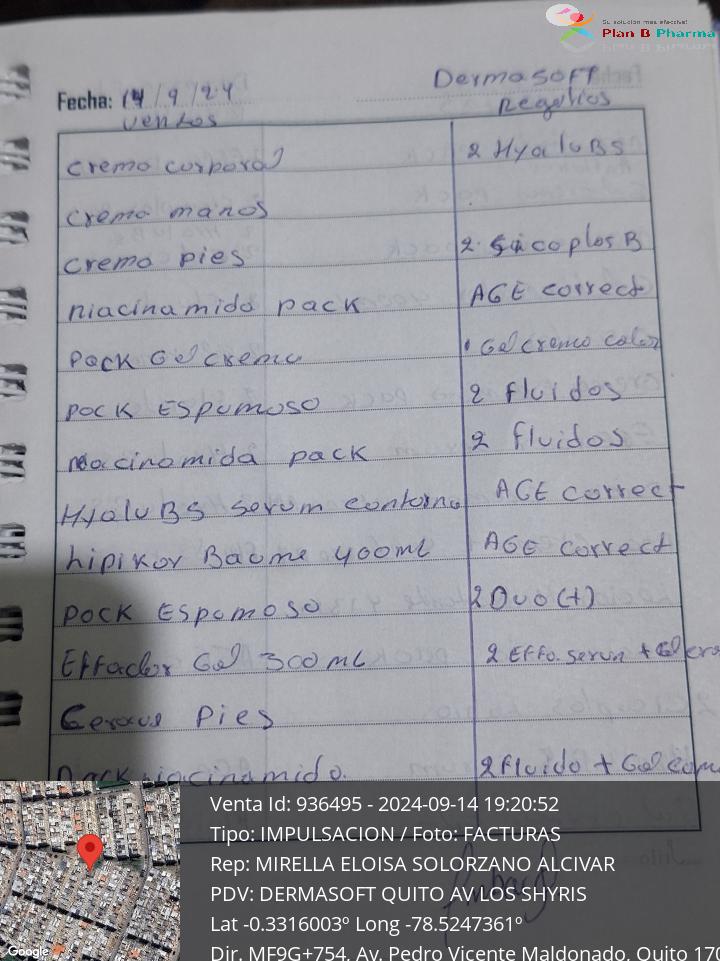 Su solución mas efectiva!
Plan B Pharma
Fecha: 14/9/24 DermaSOFT
ventas Regalias
crema corporal 2 HyaluB5
crema manos
crema pies 2 Sicaplas B
niacinamida pack AGE correct
Pack Gel crema 1 Gel crema color
Pack ESpumoso 2 fluidos
niacinamida pack 2 fluidos
HyaluB5 serum contorno AGE correct
Lipikar Baume 400ml AGE correct
Pack ESpumoso 2 Duo(+)
Effaclar Gel 300ML 2 Effa. serum + Gel crema
Cerave Pies
Pack niacinamida. 2 fluido + Gel
Venta Id: 936495 - 2024-09-14 19:20:52
Tipo: IMPULSACION / Foto: FACTURAS
Rep: MIRELLA ELOISA SOLORZANO ALCIVAR
PDV: DERMASOFT QUITO AV LOS SHYRIS
Lat -0.3316003º Long -78.5247361º
Dir. MF9G+754, Av. Pedro Vicente Maldonado, Quito 170
Google